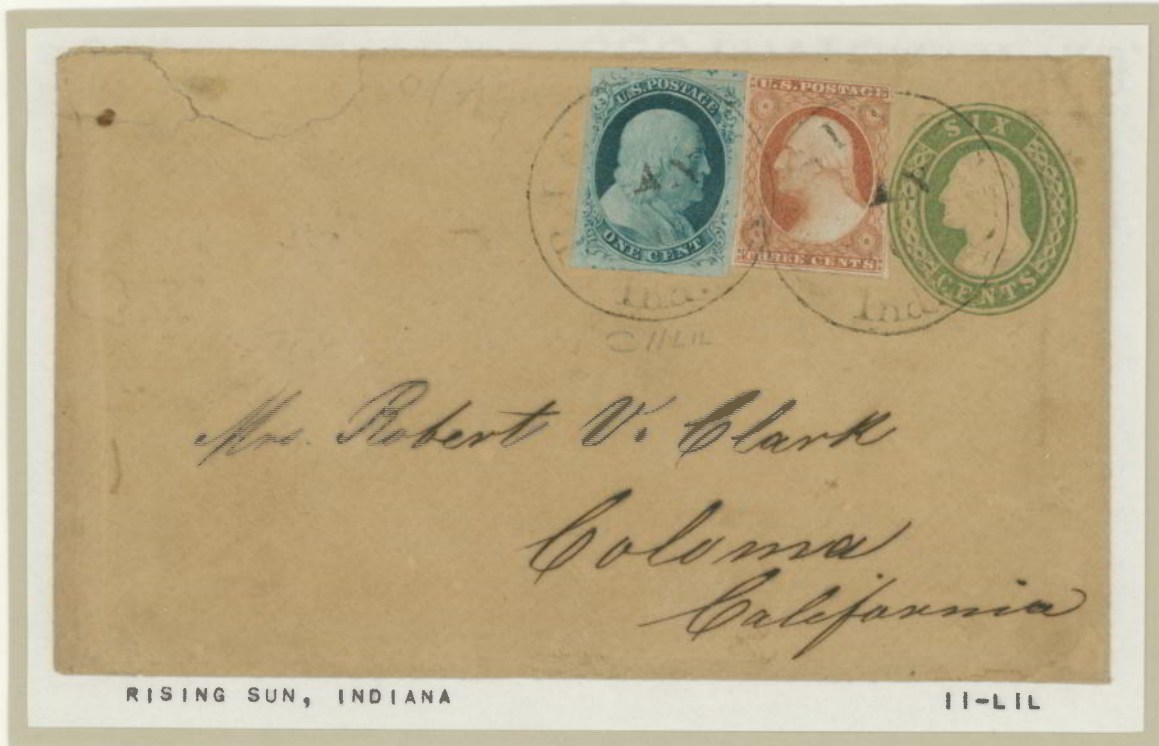 U.S. POSTAGE
ONE CENT
U.S. POSTAGE
THREE CENTS
SIX
CENTS
Ind.
Ind.
C 11LIL
Mrs. Robert V. Clark
Coloma
California
RISING SUN, INDIANA
11-LIL